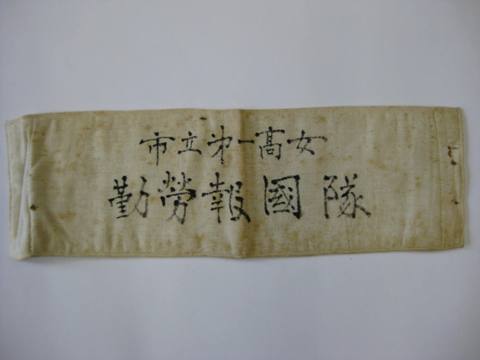 市立第一高女
勤勞報國隊